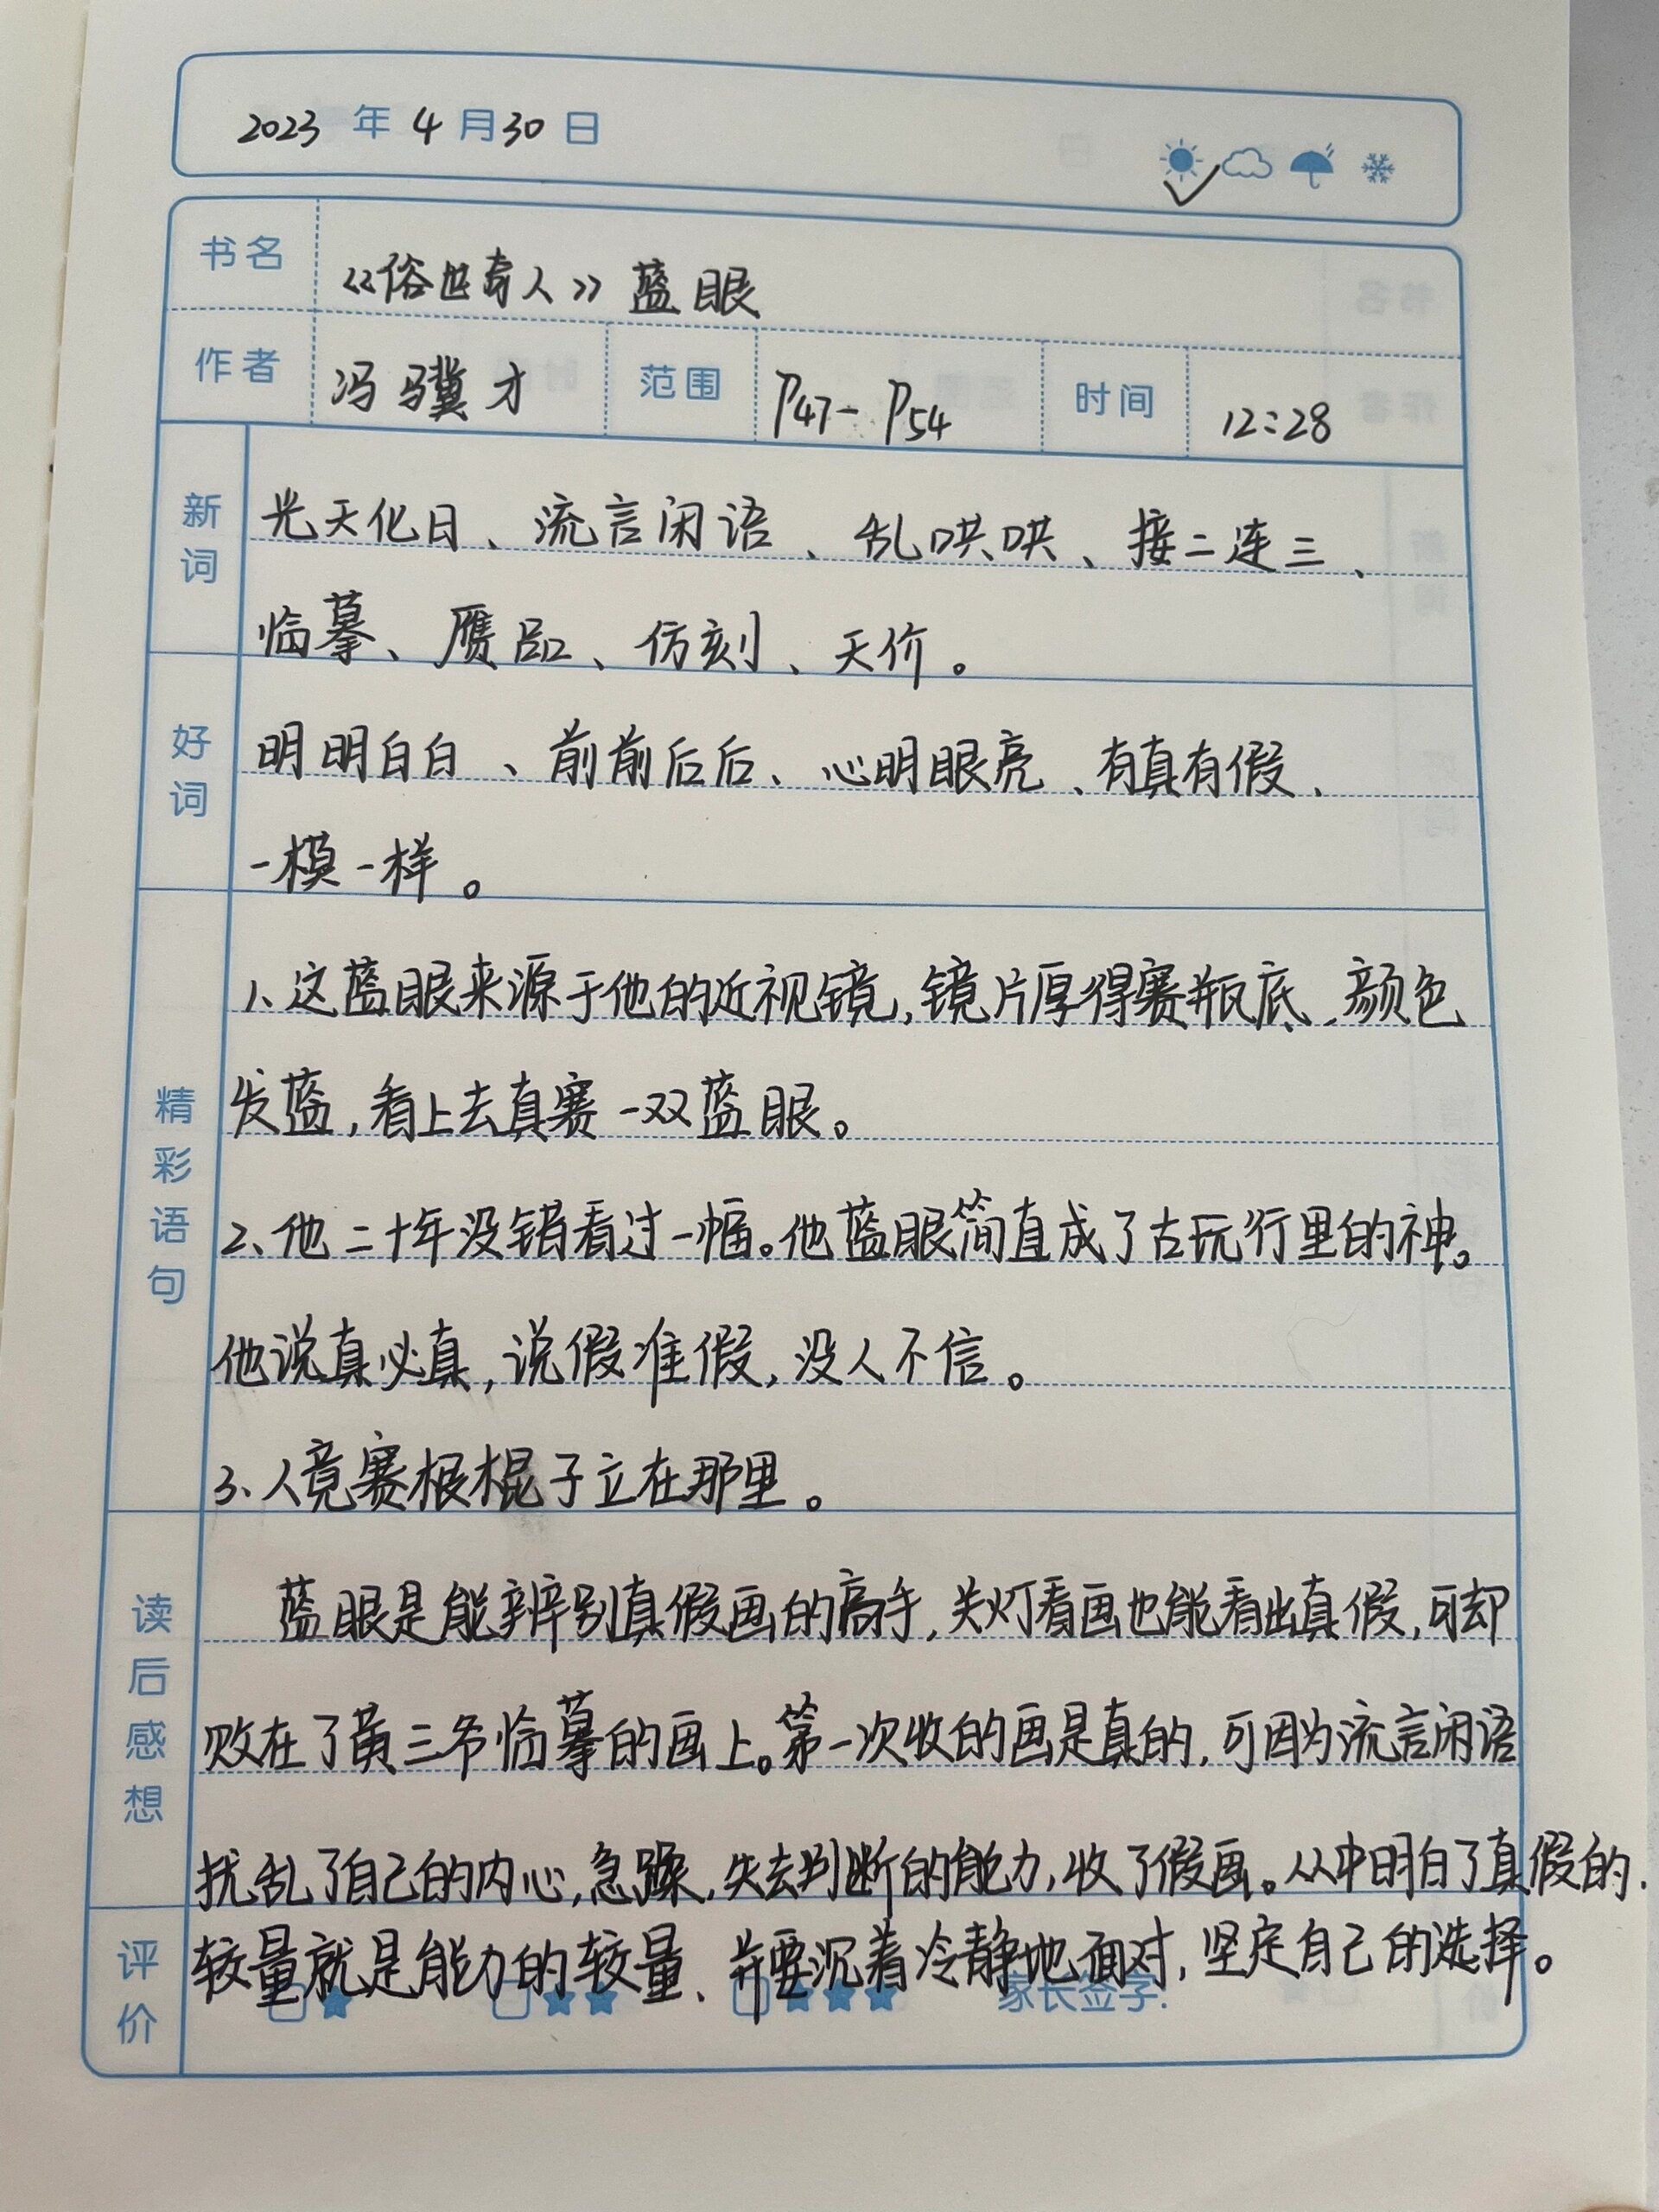 2023 年 4 月 30 日
书名 《俗世奇人》蓝眼
作者 冯骥才 范围 P47- P54 时间 12:28
新词 光天化日、流言闲语、乱哄哄、接二连三、
临摹、赝品、仿刻、天价。
好词 明明白白、前前后后、心明眼亮、有真有假、
一模一样。
精彩语句
1、这蓝眼来源于他的近视镜,镜片厚得赛瓶底、颜色
发蓝,看上去真赛一双蓝眼。
2、他二十年没错看过一幅。他蓝眼简直成了古玩行里的神。
他说真必真,说假准假,没人不信。
3、人竟赛根棍子立在那里。
读后感想
蓝眼是能辨别真假画的高手,关灯看画也能看出真假,可却
败在了黄三爷临摹的画上。第一次收的画是真的,可因为流言闲语
扰乱了自己的内心,急躁,失去判断的能力,收了假画。从中明白了真假的
较量就是能力的较量、并要沉着冷静地面对,坚定自己的选择。
评价 家长签字: